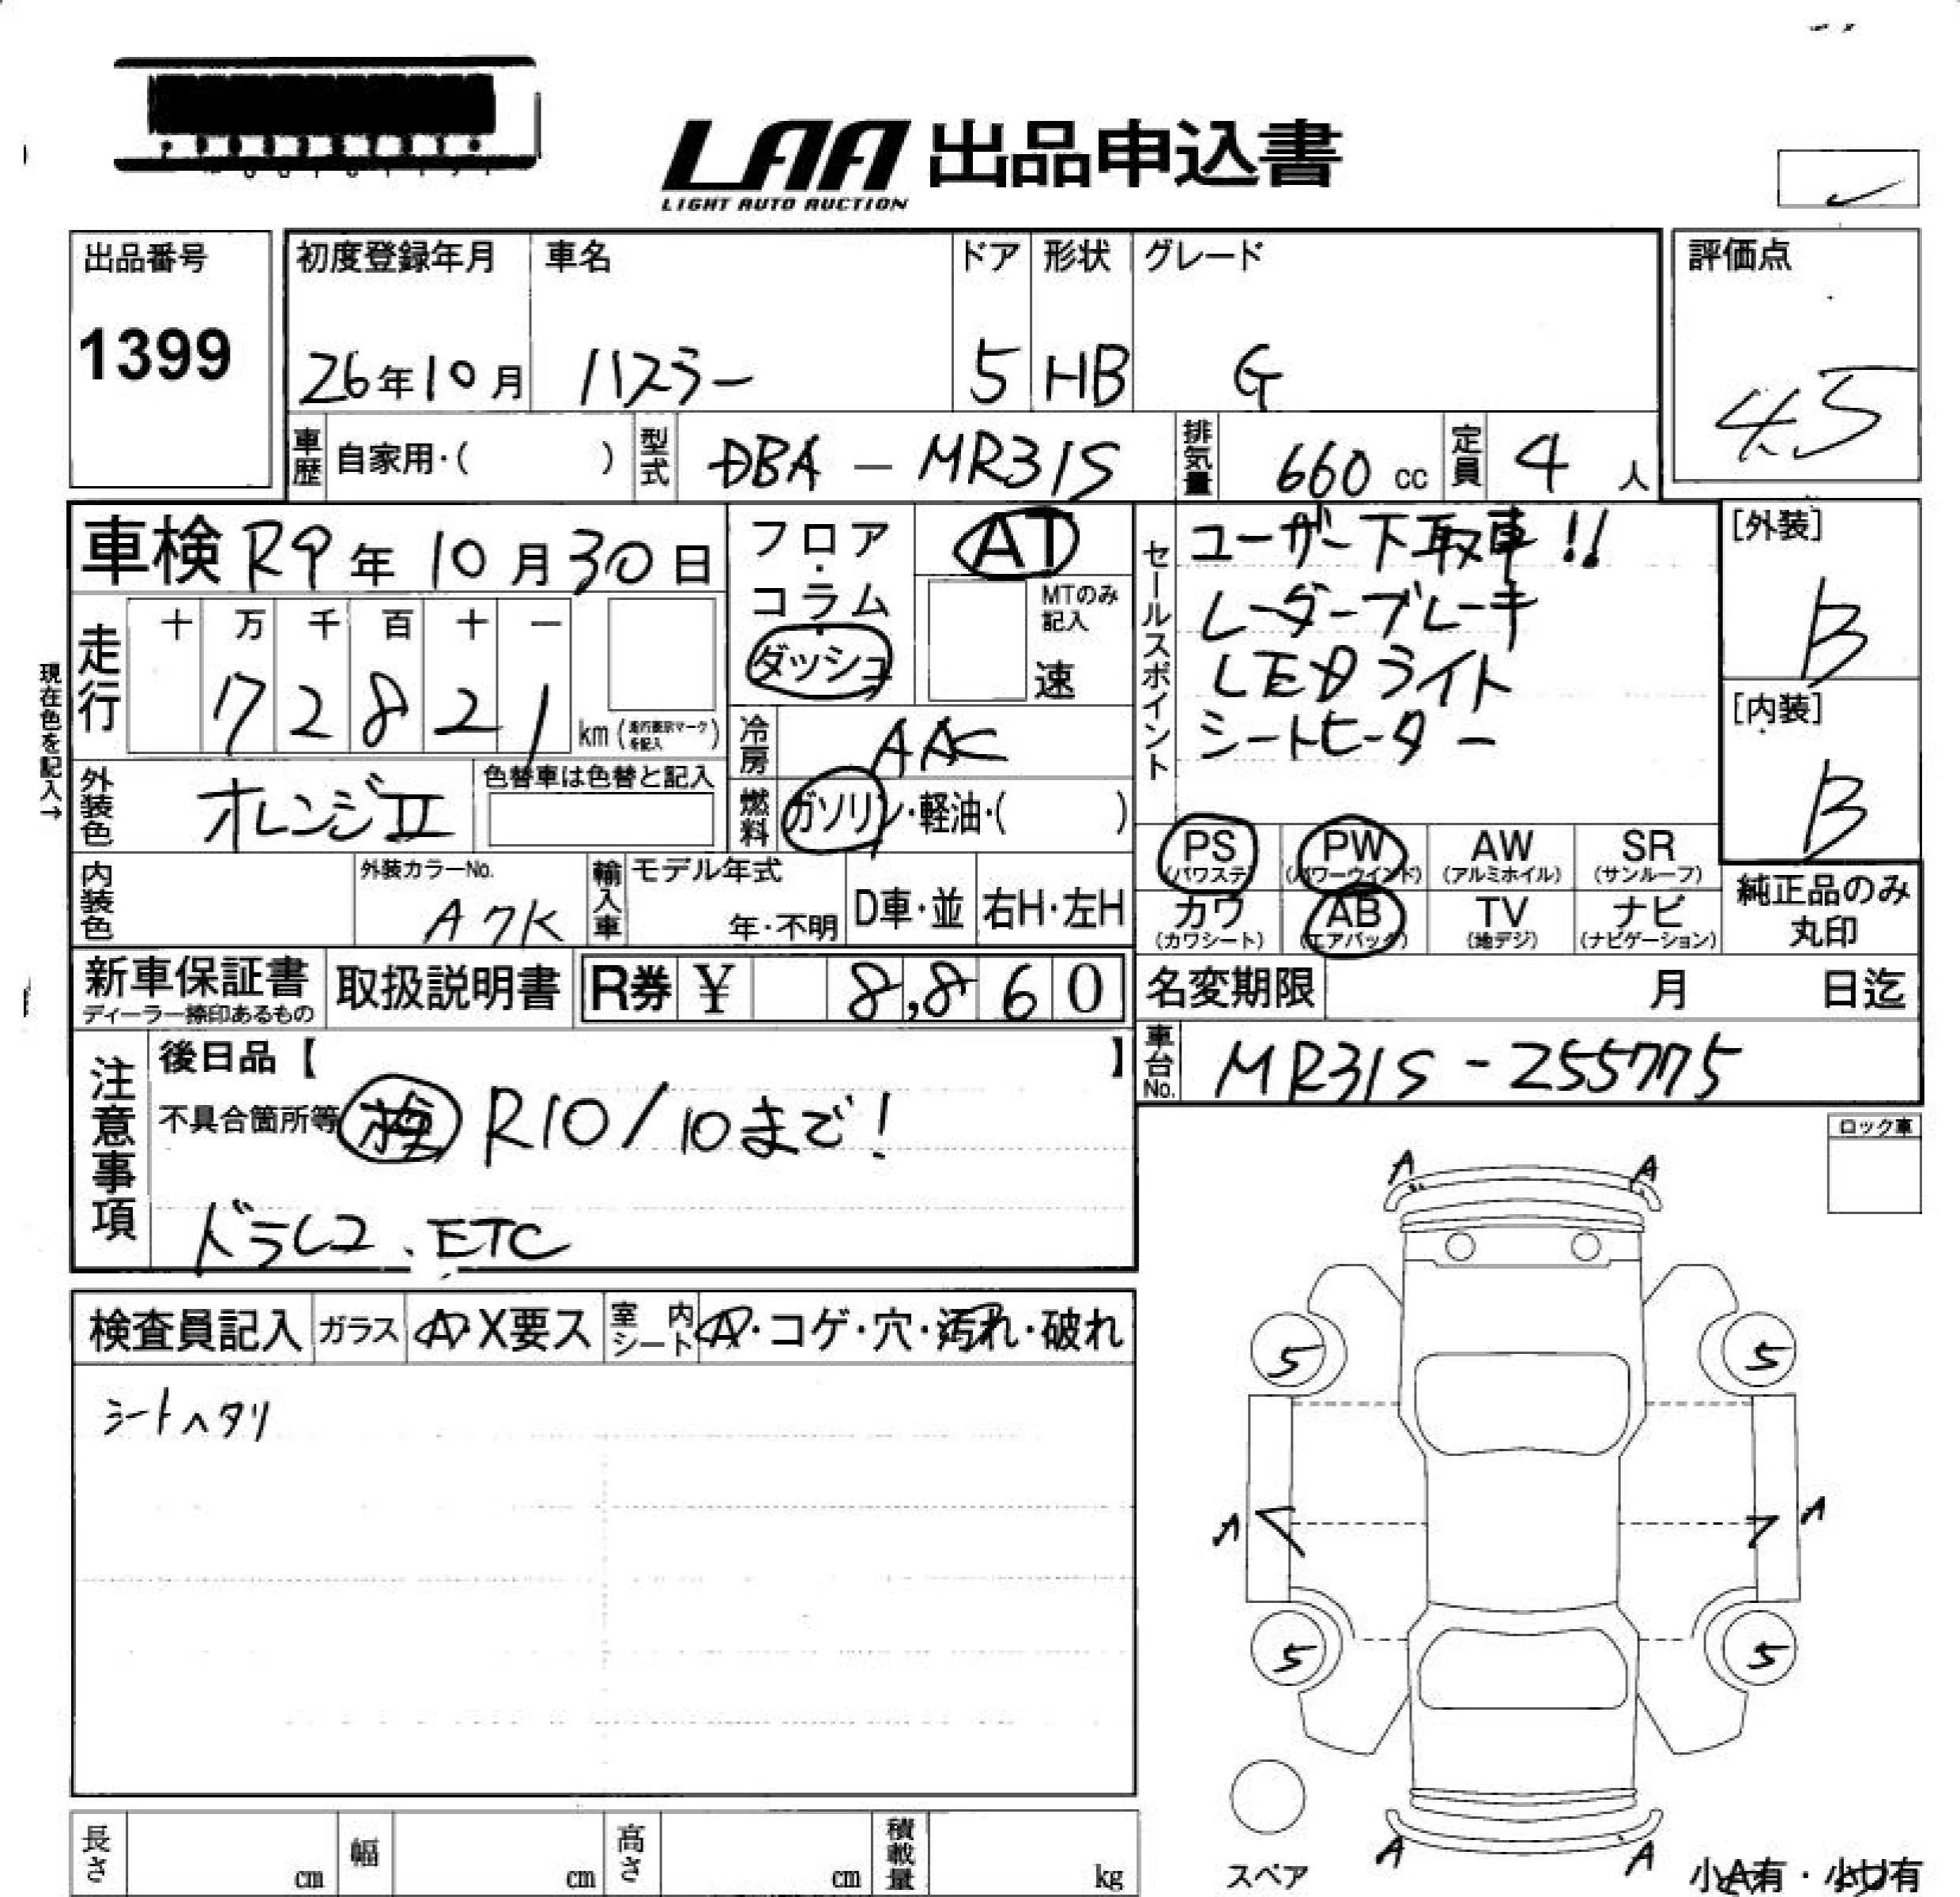 LAA 出品申込書
LIGHT AUTO AUCTION
出品番号
1399
初度登録年月 車名 ドア 形状 グレード
26年10月 ハスラー 5 HB G
評価点
4.5
車歴 自家用・( ) 型式 DBA - MR31S 排気量 660 cc 定員 4 人
車検 R9年10月30日
フロア・コラム・ダッシュ
AT
MTのみ記入
速
走行
十 万 千 百 十 一
7 2 8 2 1 km (走行表示マークを記入)
現在色を記入→
冷房 AAC
外装色 オレンジII
色替車は色替と記入
燃料 ガソリン・軽油・( )
内装色
外装カラーNo.
A7K
輸入車 モデル年式
年・不明 D車・並 右H・左H
セールスポイント
ユーザー下取車!!
レーダーブレーキ
LEDライト
シートヒーター
[外装]
B
[内装]
B
PS PW AW SR
(パワステ) (パワーウインド) (アルミホイル) (サンルーフ)
カワ AB TV ナビ
(カワシート) (エアバック) (地デジ) (ナビゲーション)
純正品のみ
丸印
新車保証書
ディーラー捺印あるもの
取扱説明書 R券 ¥ 8,860
名変期限 月 日迄
車台No. MR31S-255775
注意事項
後日品【 】
不具合箇所等 検 R10/10まで!
ドラレコ、ETC
ロック車
検査員記入 ガラス A・X要ス 室内シート A・コゲ・穴・汚れ・破れ
シートヘタリ
A A
5 5
A A
5 5
A A
スペア
小A有・小U有
長さ cm 幅 cm 高さ cm 積載量 kg